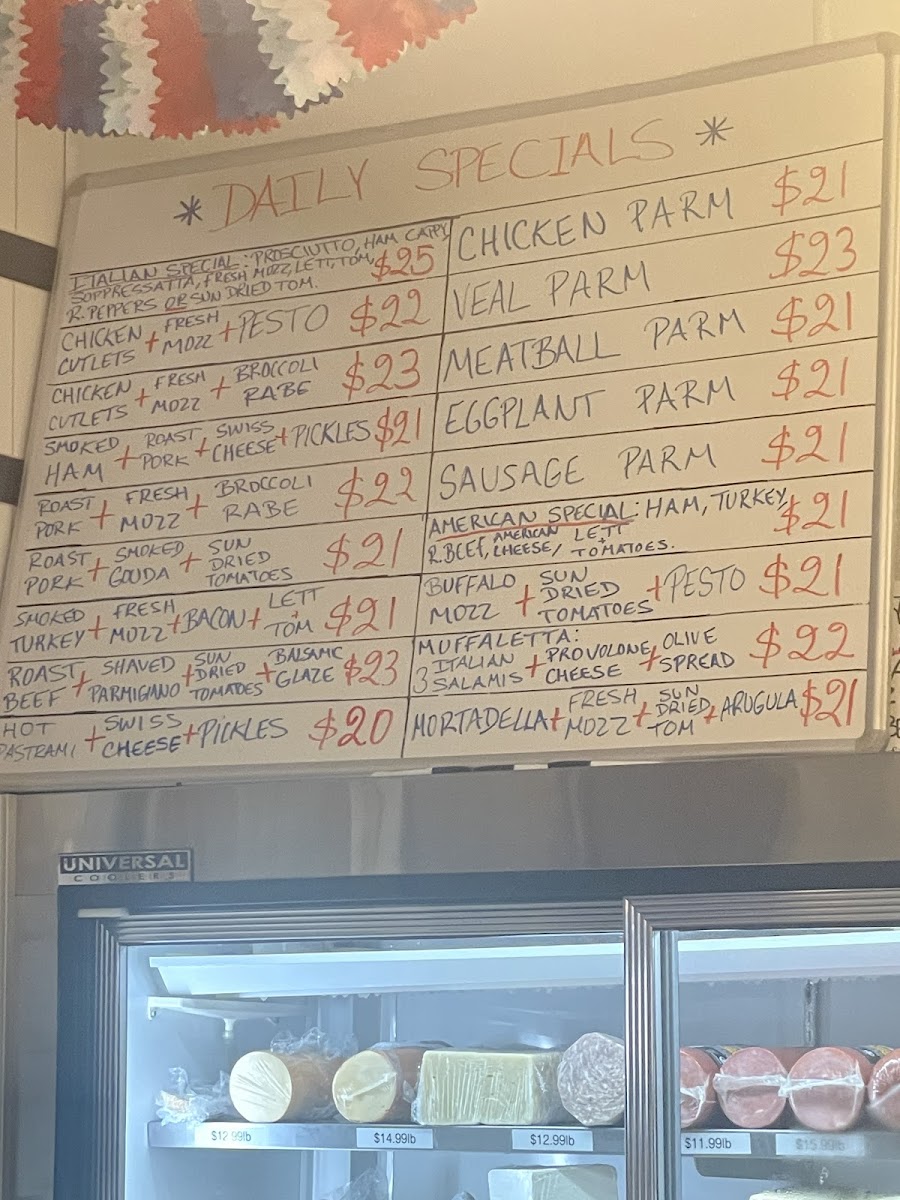 * DAILY SPECIALS *
ITALIAN SPECIAL: PROSCIUTTO, HAM CAPPY,
SOPPRESSATTA, FRESH MOZZ, LETT, TOM, $25
R. PEPPERS OR SUN DRIED TOM.
CHICKEN CUTLETS + FRESH MOZZ + PESTO $22
CHICKEN CUTLETS + FRESH MOZZ + BROCCOLI RABE $23
SMOKED HAM + ROAST PORK + SWISS CHEESE + PICKLES $21
ROAST PORK + FRESH MOZZ + BROCCOLI RABE $22
ROAST PORK + SMOKED GOUDA + SUN DRIED TOMATOES $21
SMOKED TURKEY + FRESH MOZZ + BACON + LETT + TOM $21
ROAST BEEF + SHAVED PARMIGIANO + SUN DRIED TOMATOES + BALSAMIC GLAZE $23
HOT PASTRAMI + SWISS CHEESE + PICKLES $20
CHICKEN PARM $21
VEAL PARM $23
MEATBALL PARM $21
EGGPLANT PARM $21
SAUSAGE PARM $21
AMERICAN SPECIAL: HAM, TURKEY, $21
R. BEEF, AMERICAN CHEESE, LETT + TOMATOES.
BUFFALO MOZZ + SUN DRIED TOMATOES + PESTO $21
MUFFALETTA:
3 ITALIAN SALAMIS + PROVOLONE CHEESE + OLIVE SPREAD $22
MORTADELLA + FRESH MOZZ + SUN DRIED TOM + ARUGULA $21
UNIVERSAL
COOLERS
$12.99lb
$14.99lb
$12.99lb
$11.99lb
$15.99lb